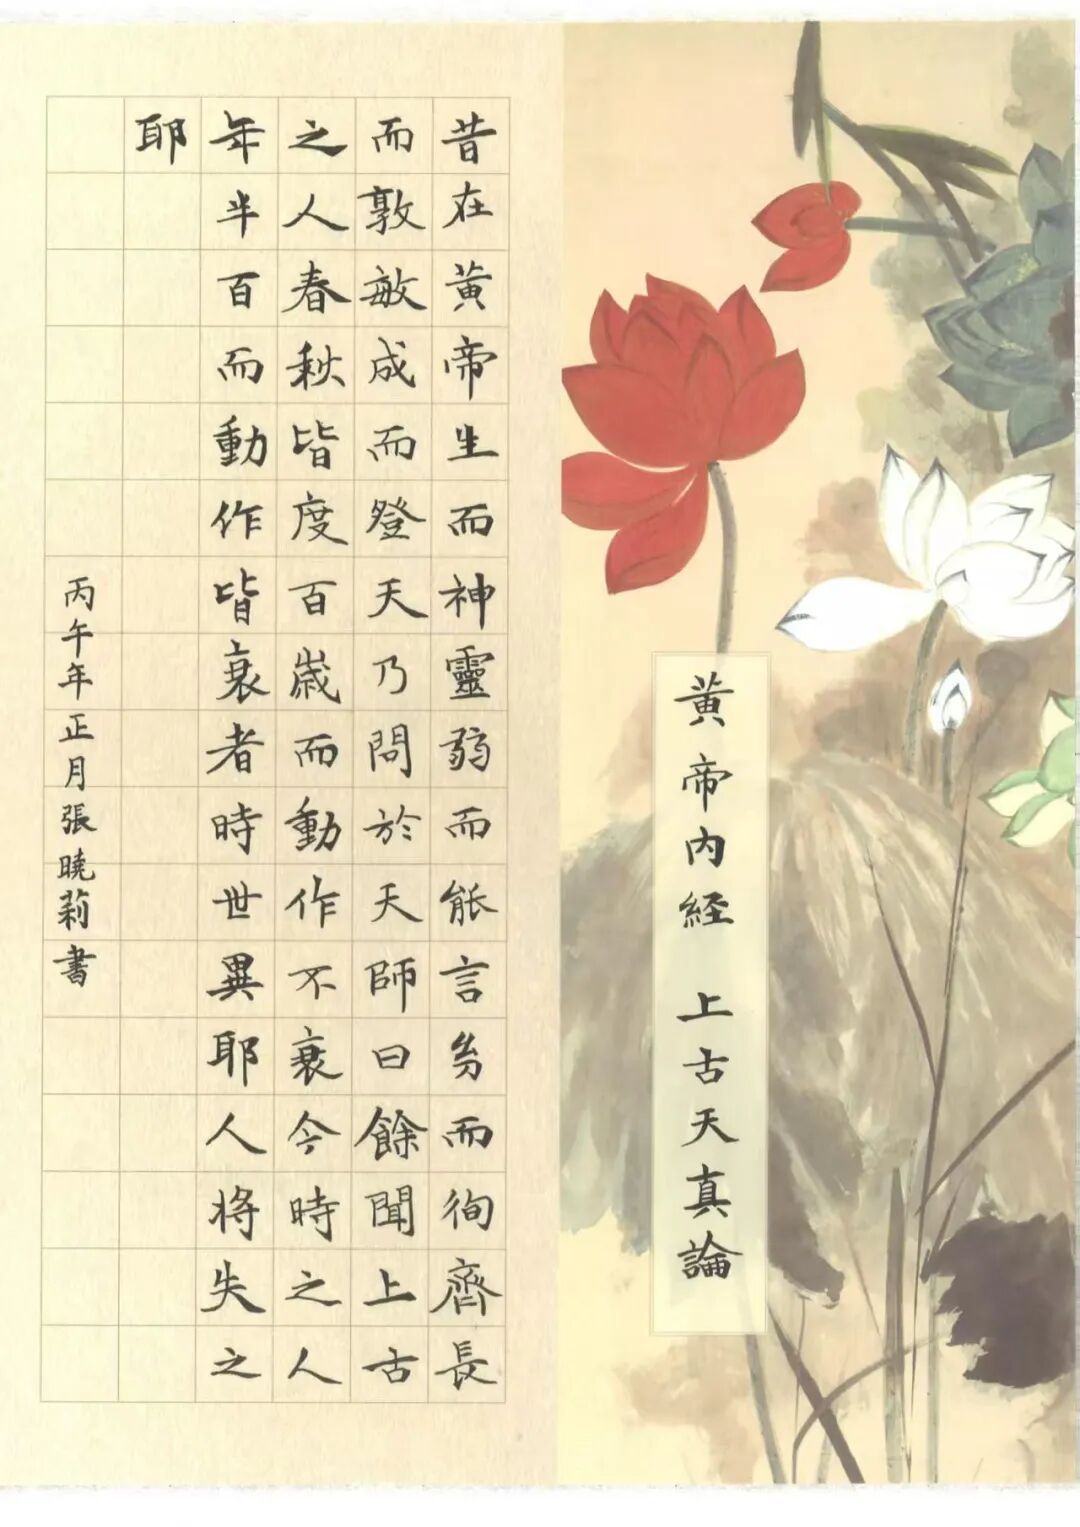 黃帝內經 上古天真論
昔在黃帝生而神靈弱而能言幼而徇齊長
而敦敏成而登天乃問於天師曰餘聞上古
之人春秋皆度百歲而動作不衰今時之人
年半百而動作皆衰者時世異耶人將失之
耶
丙午年正月張曉莉書